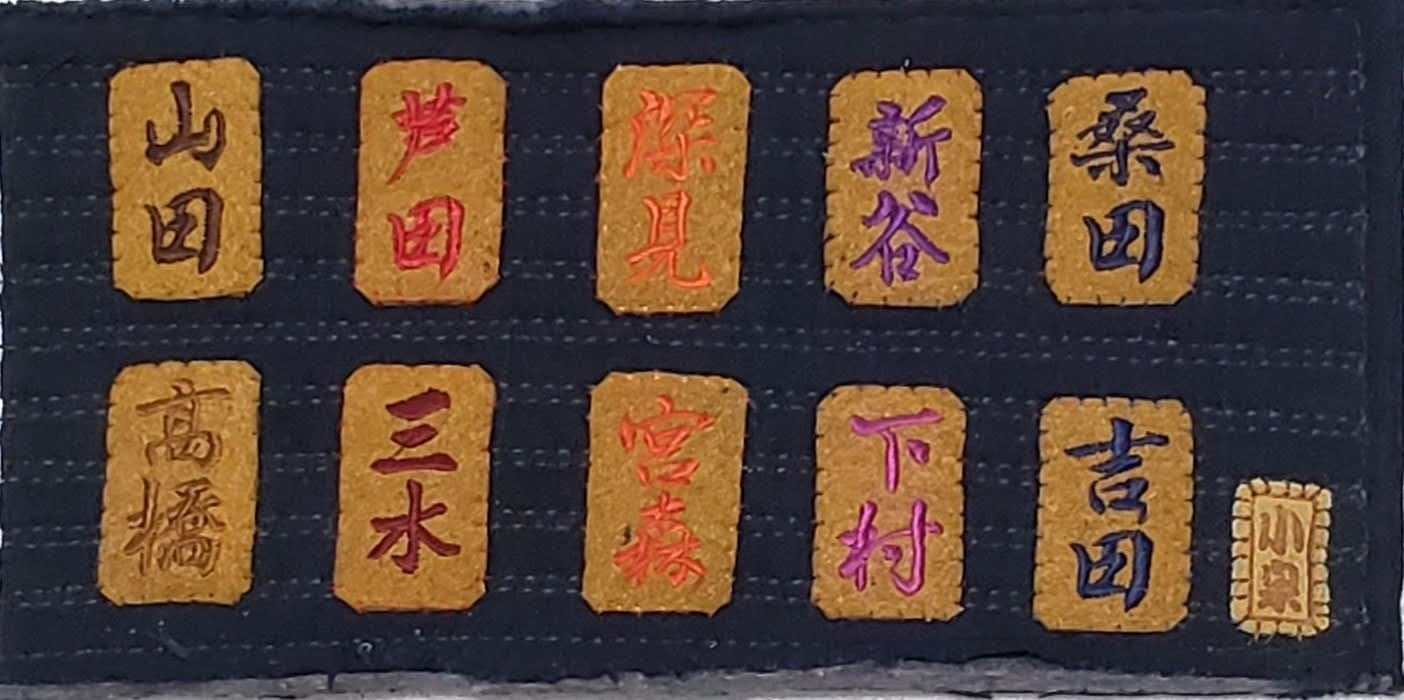 山田
芦田
深見
新谷
桑田
高橋
三水
宮森
下村
吉田
小泉